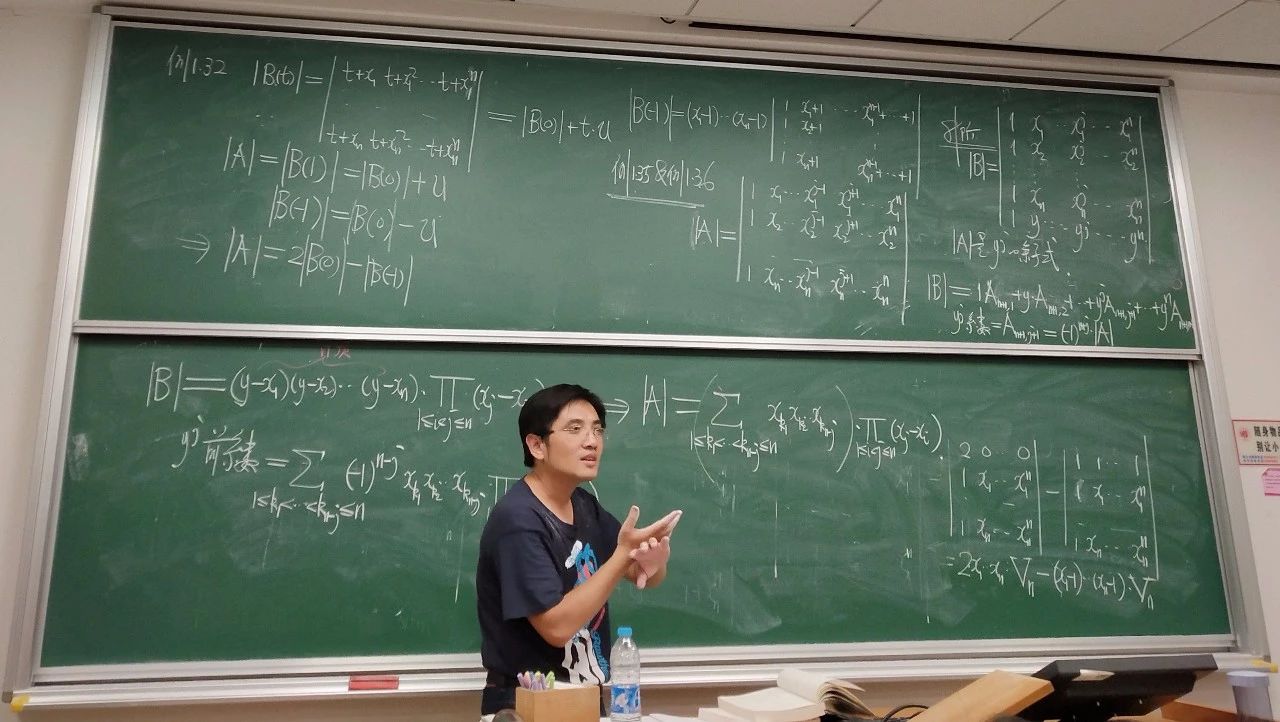 例1.32 |B(t)| = | t+x₁ t+x₁² ··· t+x₁ⁿ |
··· ···
| t+xₙ t+xₙ² ··· t+xₙⁿ |
= |B(0)| + t·u
|A| = |B(1)| = |B(0)| + u
|B(-1)| = |B(0)| - u
⇒ |A| = 2|B(0)| - |B(-1)|
|B(-1)| = (x₁-1)···(xₙ-1) | 1 x₁+1 ··· x₁ⁿ⁻¹+···+1 |
| 1 xₙ+1 ··· xₙⁿ⁻¹+···+1 |
例1.35&例1.36
|A| = | 1 x₁ ··· x₁ʲ⁻¹ x₁ʲ⁺¹ ··· x₁ⁿ |
| 1 x₂ ··· x₂ʲ⁻¹ x₂ʲ⁺¹ ··· x₂ⁿ |
| 1 xₙ ··· xₙʲ⁻¹ xₙʲ⁺¹ ··· xₙⁿ |
|B| = | 1 x₁ ··· x₁ʲ ··· x₁ⁿ |
| 1 x₂ ··· x₂ʲ ··· x₂ⁿ |
| 1 xₙ ··· xₙʲ ··· xₙⁿ |
| 1 y ··· yʲ ··· yⁿ |
|A|是yʲ余子式
|B| = 1·Aₙ₊₁,₁ + y·Aₙ₊₁,₂ + ··· + yʲAₙ₊₁,ⱼ₊₁ + ··· + yⁿAₙ₊₁,ₙ₊₁
yʲ系数 = Aₙ₊₁,ⱼ₊₁ = (-1)ⁿ⁺ʲ·|A|
|B| = (y-x₁)(y-x₂)···(y-xₙ)·∏ (xⱼ-x
1≤i<j≤n
yʲ前系数 = ∑ (-1)ⁿ⁻ʲ xₖ₁xₖ₂···xₖₙ₋ⱼ·∏
1≤k₁<···<kₙ₋ⱼ≤n
⇒ |A| = ( ∑ xₖ₁xₖ₂···xₖₙ₋ⱼ )·∏ (xⱼ-xᵢ)
1≤k₁<···<kₙ₋ⱼ≤n 1≤i<j≤n
| 2 0 ··· 0 | - | 1 1 ··· 1 |
| 1 x₁ ··· x₁ⁿ | | 1 x₁ ··· x₁ⁿ |
| 1 xₙ ··· xₙⁿ | | 1 xₙ ··· xₙⁿ |
= 2x₁···xₙ·∇ₙ - (x₁-1)···(xₙ-1)·∇ₙ
随身物
别让小